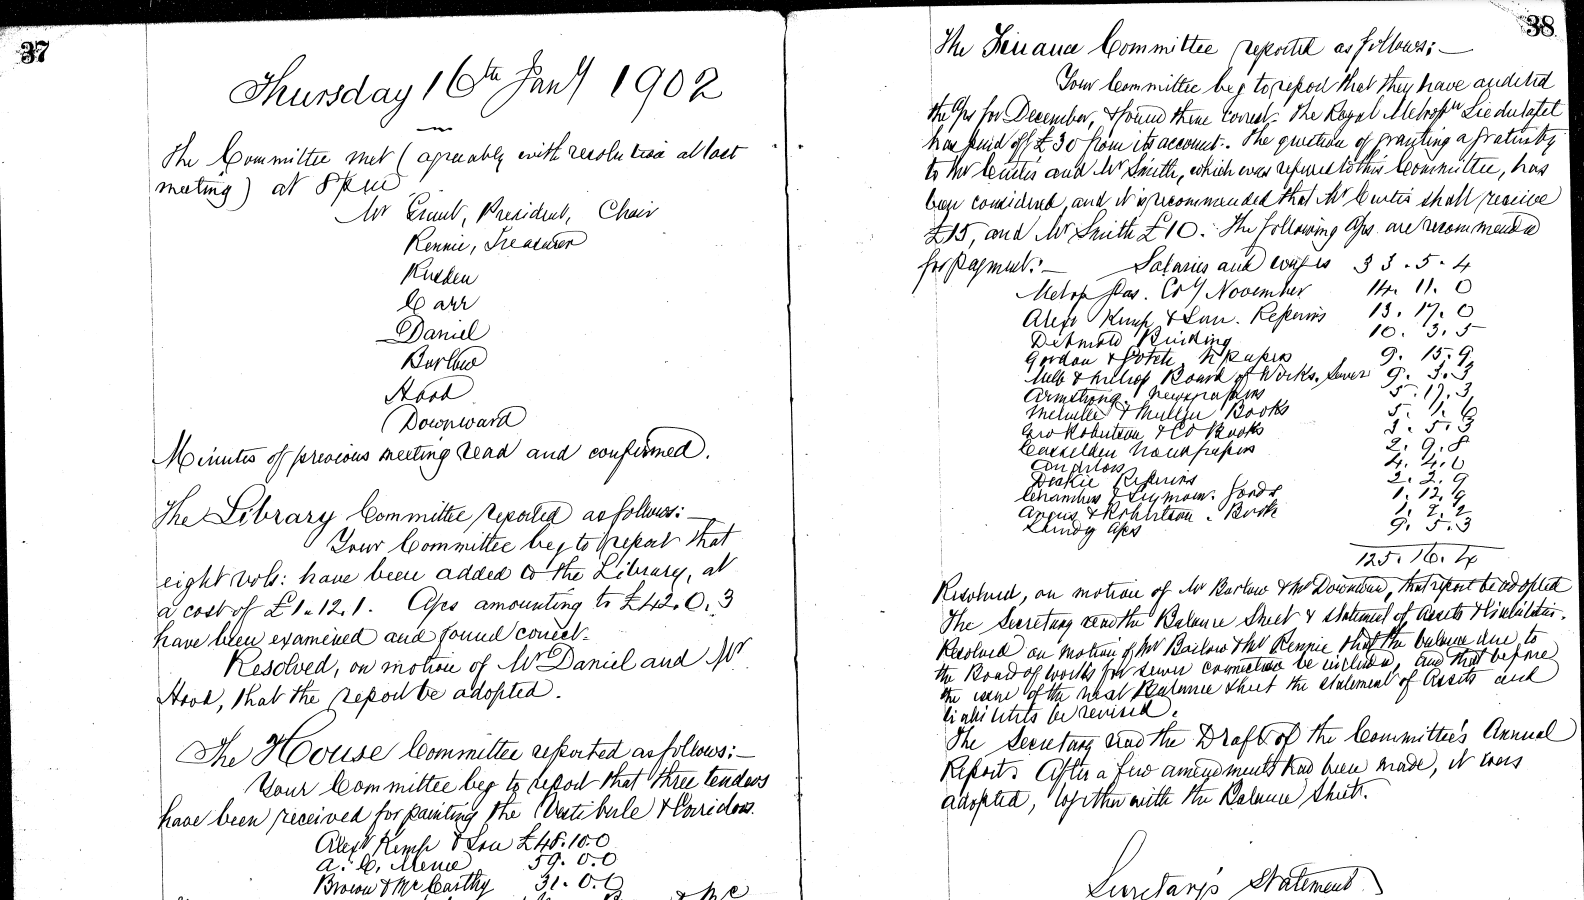 37
Thursday 16th Jany 1902
The Committee met (agreeably with resolution at last
meeting) at 8 p.m.
Mr Grant, President, Chair
Rennie, Treasurer
Rusden
Carr
Daniel
Barlow
Hood
Downward
Minutes of previous meeting read and confirmed.
The Library Committee reported as follows:—
Your Committee beg to report that
eight vols: have been added to the Library, at
a cost of £1.12.1. A/cs amounting to £42.0.3
have been examined and found correct.
Resolved, on motion of Mr Daniel and Mr
Hood, that the report be adopted.
The House Committee reported as follows:—
Your Committee beg to report that three tenders
have been received for painting the Vestibule & Corridors.
Alexr Kemp & Son £48.10.0
A. C. 59.0.0
Brown & McCarthy 31.0.0
& Mc
38
The Finance Committee reported as follows:—
Your Committee beg to report that they have audited
the A/cs for December, & found them correct. The Royal Metropn Liedertafel
has paid off £30 from its account. The question of granting a gratuity
to Mr Curtis and Mr Smith, which was referred to this Committee, has
been considered, and it is recommended that Mr Curtis shall receive
£15, and Mr Smith £10. The following A/cs are recommended
for payment:— Salaries and wages 33.5.4
Metrop Gas. Coy November 14.11.0
Alexr Kemp & Son. Repairs 13.17.0
Detmold Binding 10.3.5
Gordon & Gotch N'papers 9.15.9
Melb & Metrop Board of Works, Sewer 9.3.3
Armstrong. Newspapers 5.17.3
Melville & Mullen Books 5.1.6
Geo Robertson & Co Books 3.5.3
Casselden Newspapers 2.9.8
4.4.0
Repairs 2.2.9
Chambers & Seymour. Goods 1.12.9
Angus & Robertson. Book 1.2.2
Sundry A/cs 9.5.3
125.16.4
Resolved, on motion of Mr Barlow & Mr Downward, that report be adopted
The Secretary read the Balance Sheet & statement of Assets & Liabilities.
Resolved on motion of Mr Barlow & Mr Rennie that the balance due to
the Board of Works for sewer connection be included, and that before
the issue of the next Balance Sheet the statement of Assets and
liabilities be revised.
The Secretary read the Draft of the Committee's Annual
Report. After a few amendments had been made, it was
adopted, together with the Balance Sheet.
Secretary's Statement